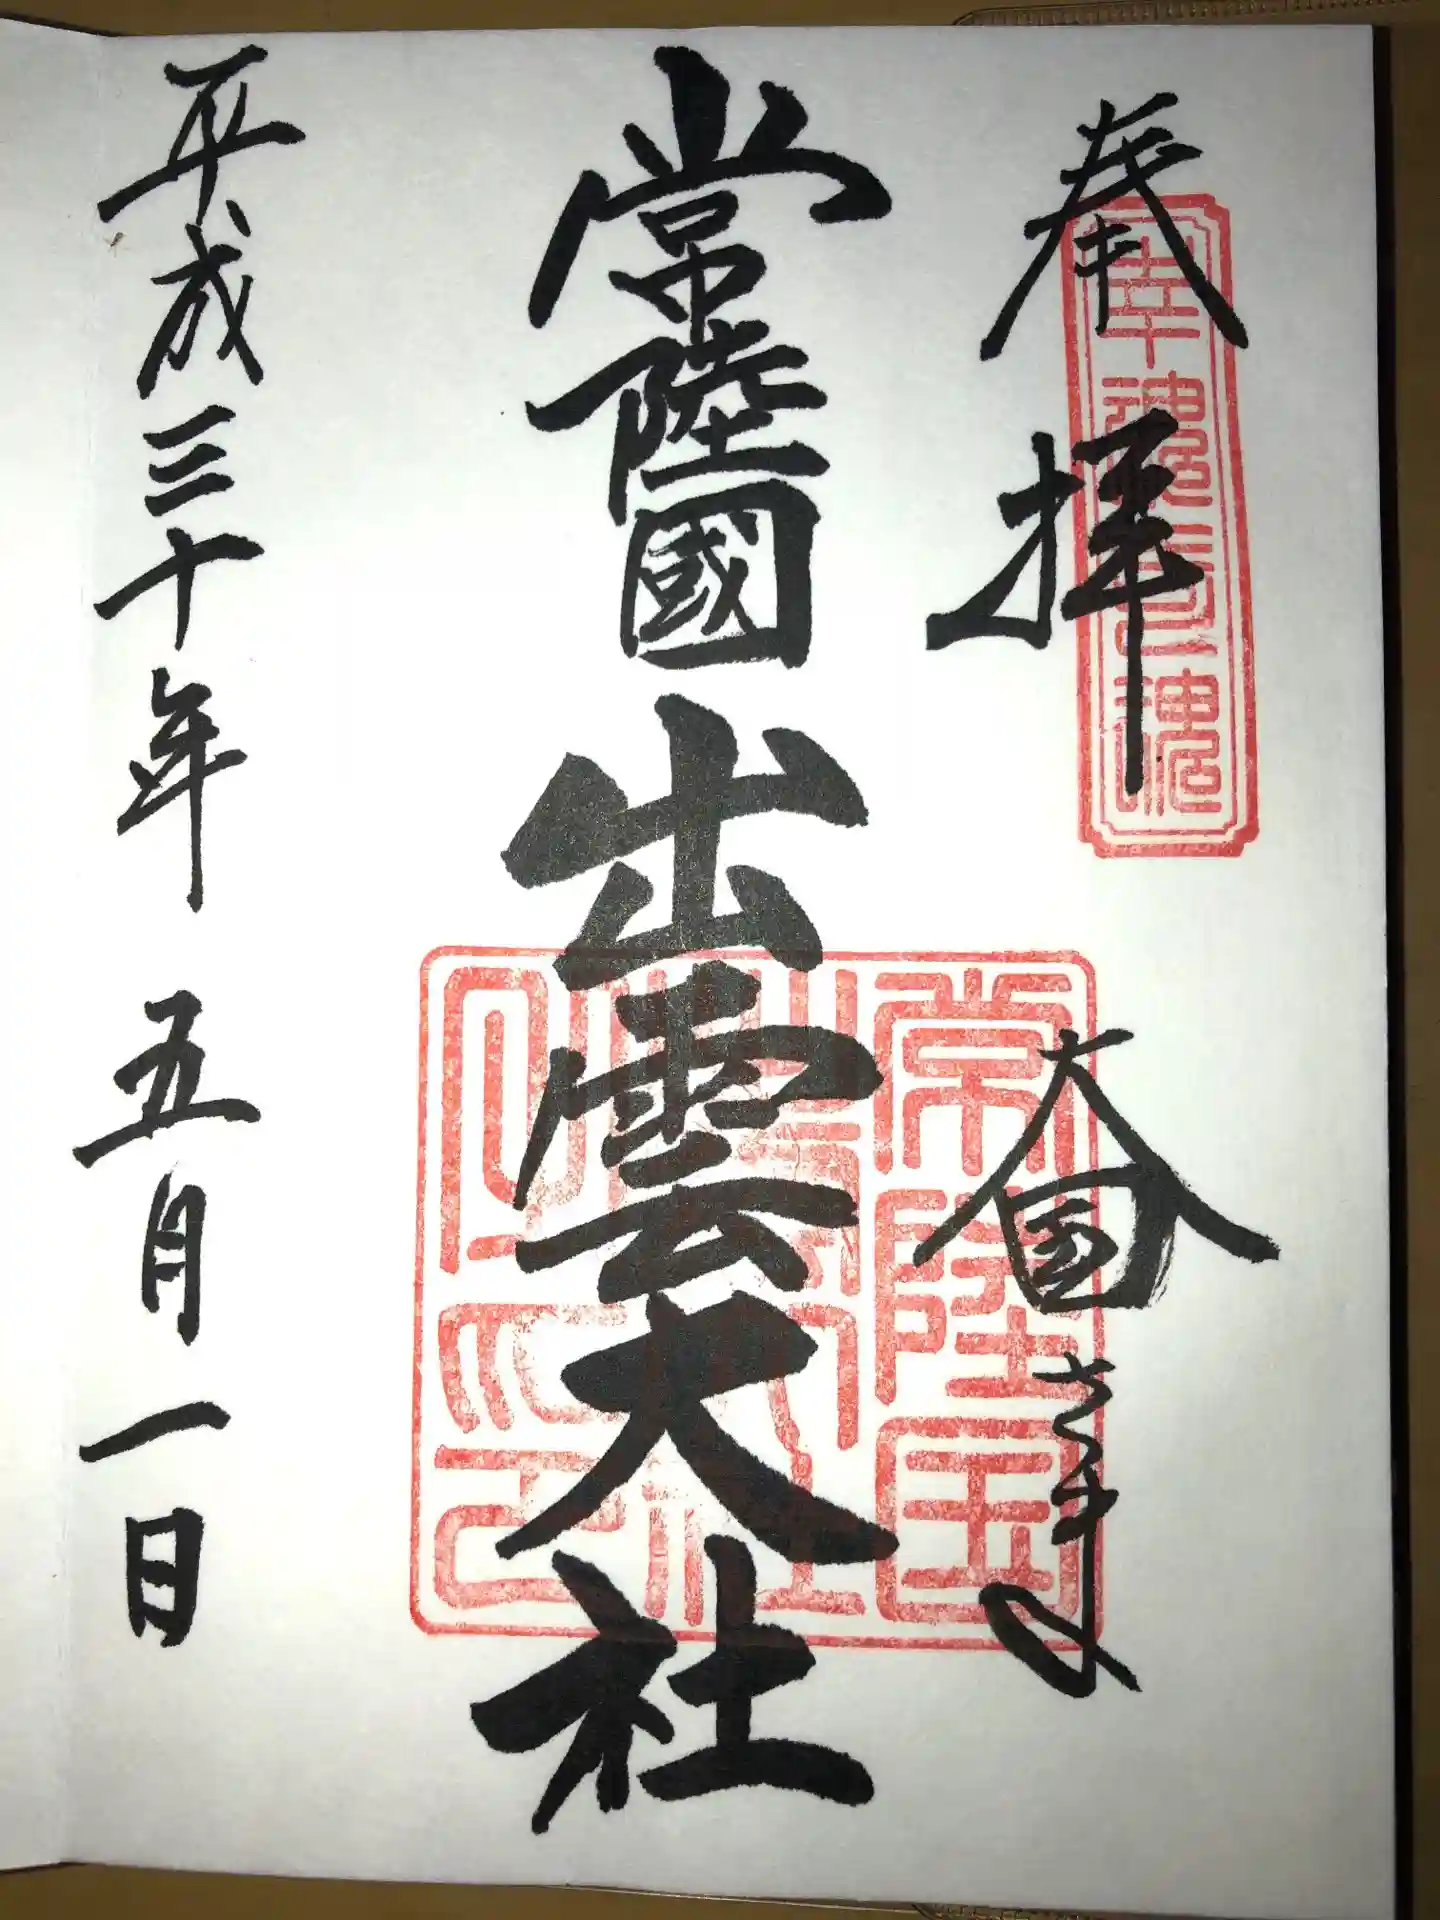 奉拝
幸魂奇魂
大国さま
常陸國出雲大社
常陸国出雲大社
平成三十年五月一日